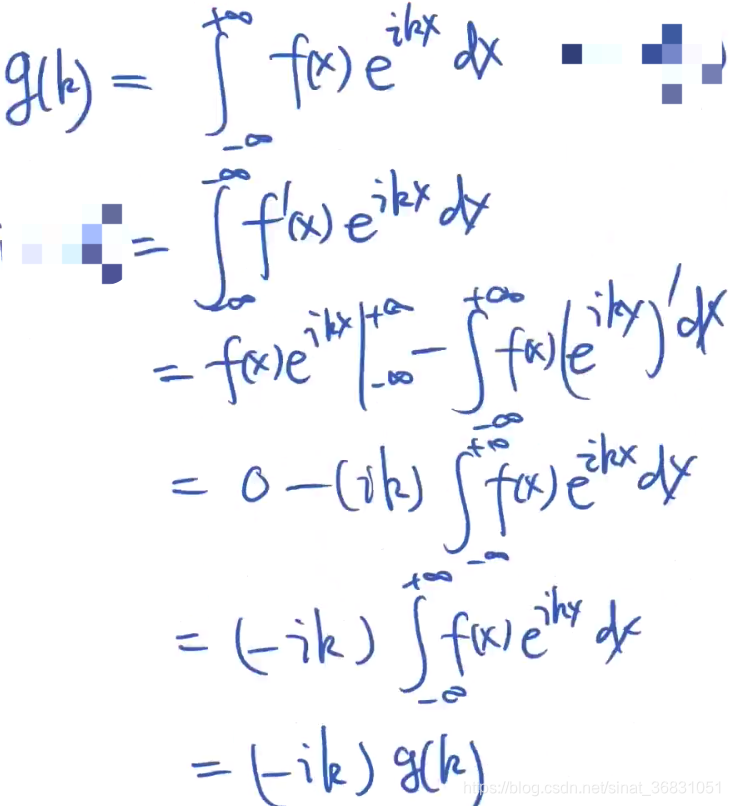 g(k) = ∫_{-∞}^{+∞} f(x) e^{ikx} dx )
= ∫_{∞}^{-∞} f'(x) e^{ikx} dx
= f(x) e^{ikx} |_{-∞}^{+∞} - ∫_{-∞}^{+∞} f(x) (e^{ikx})' dx
= 0 - (ik) ∫_{-∞}^{+∞} f(x) e^{ikx} dx
= (-ik) ∫_{-∞}^{+∞} f(x) e^{ikx} dx
= (-ik) g(k)
https://blog.csdn.net/sinat_36831051